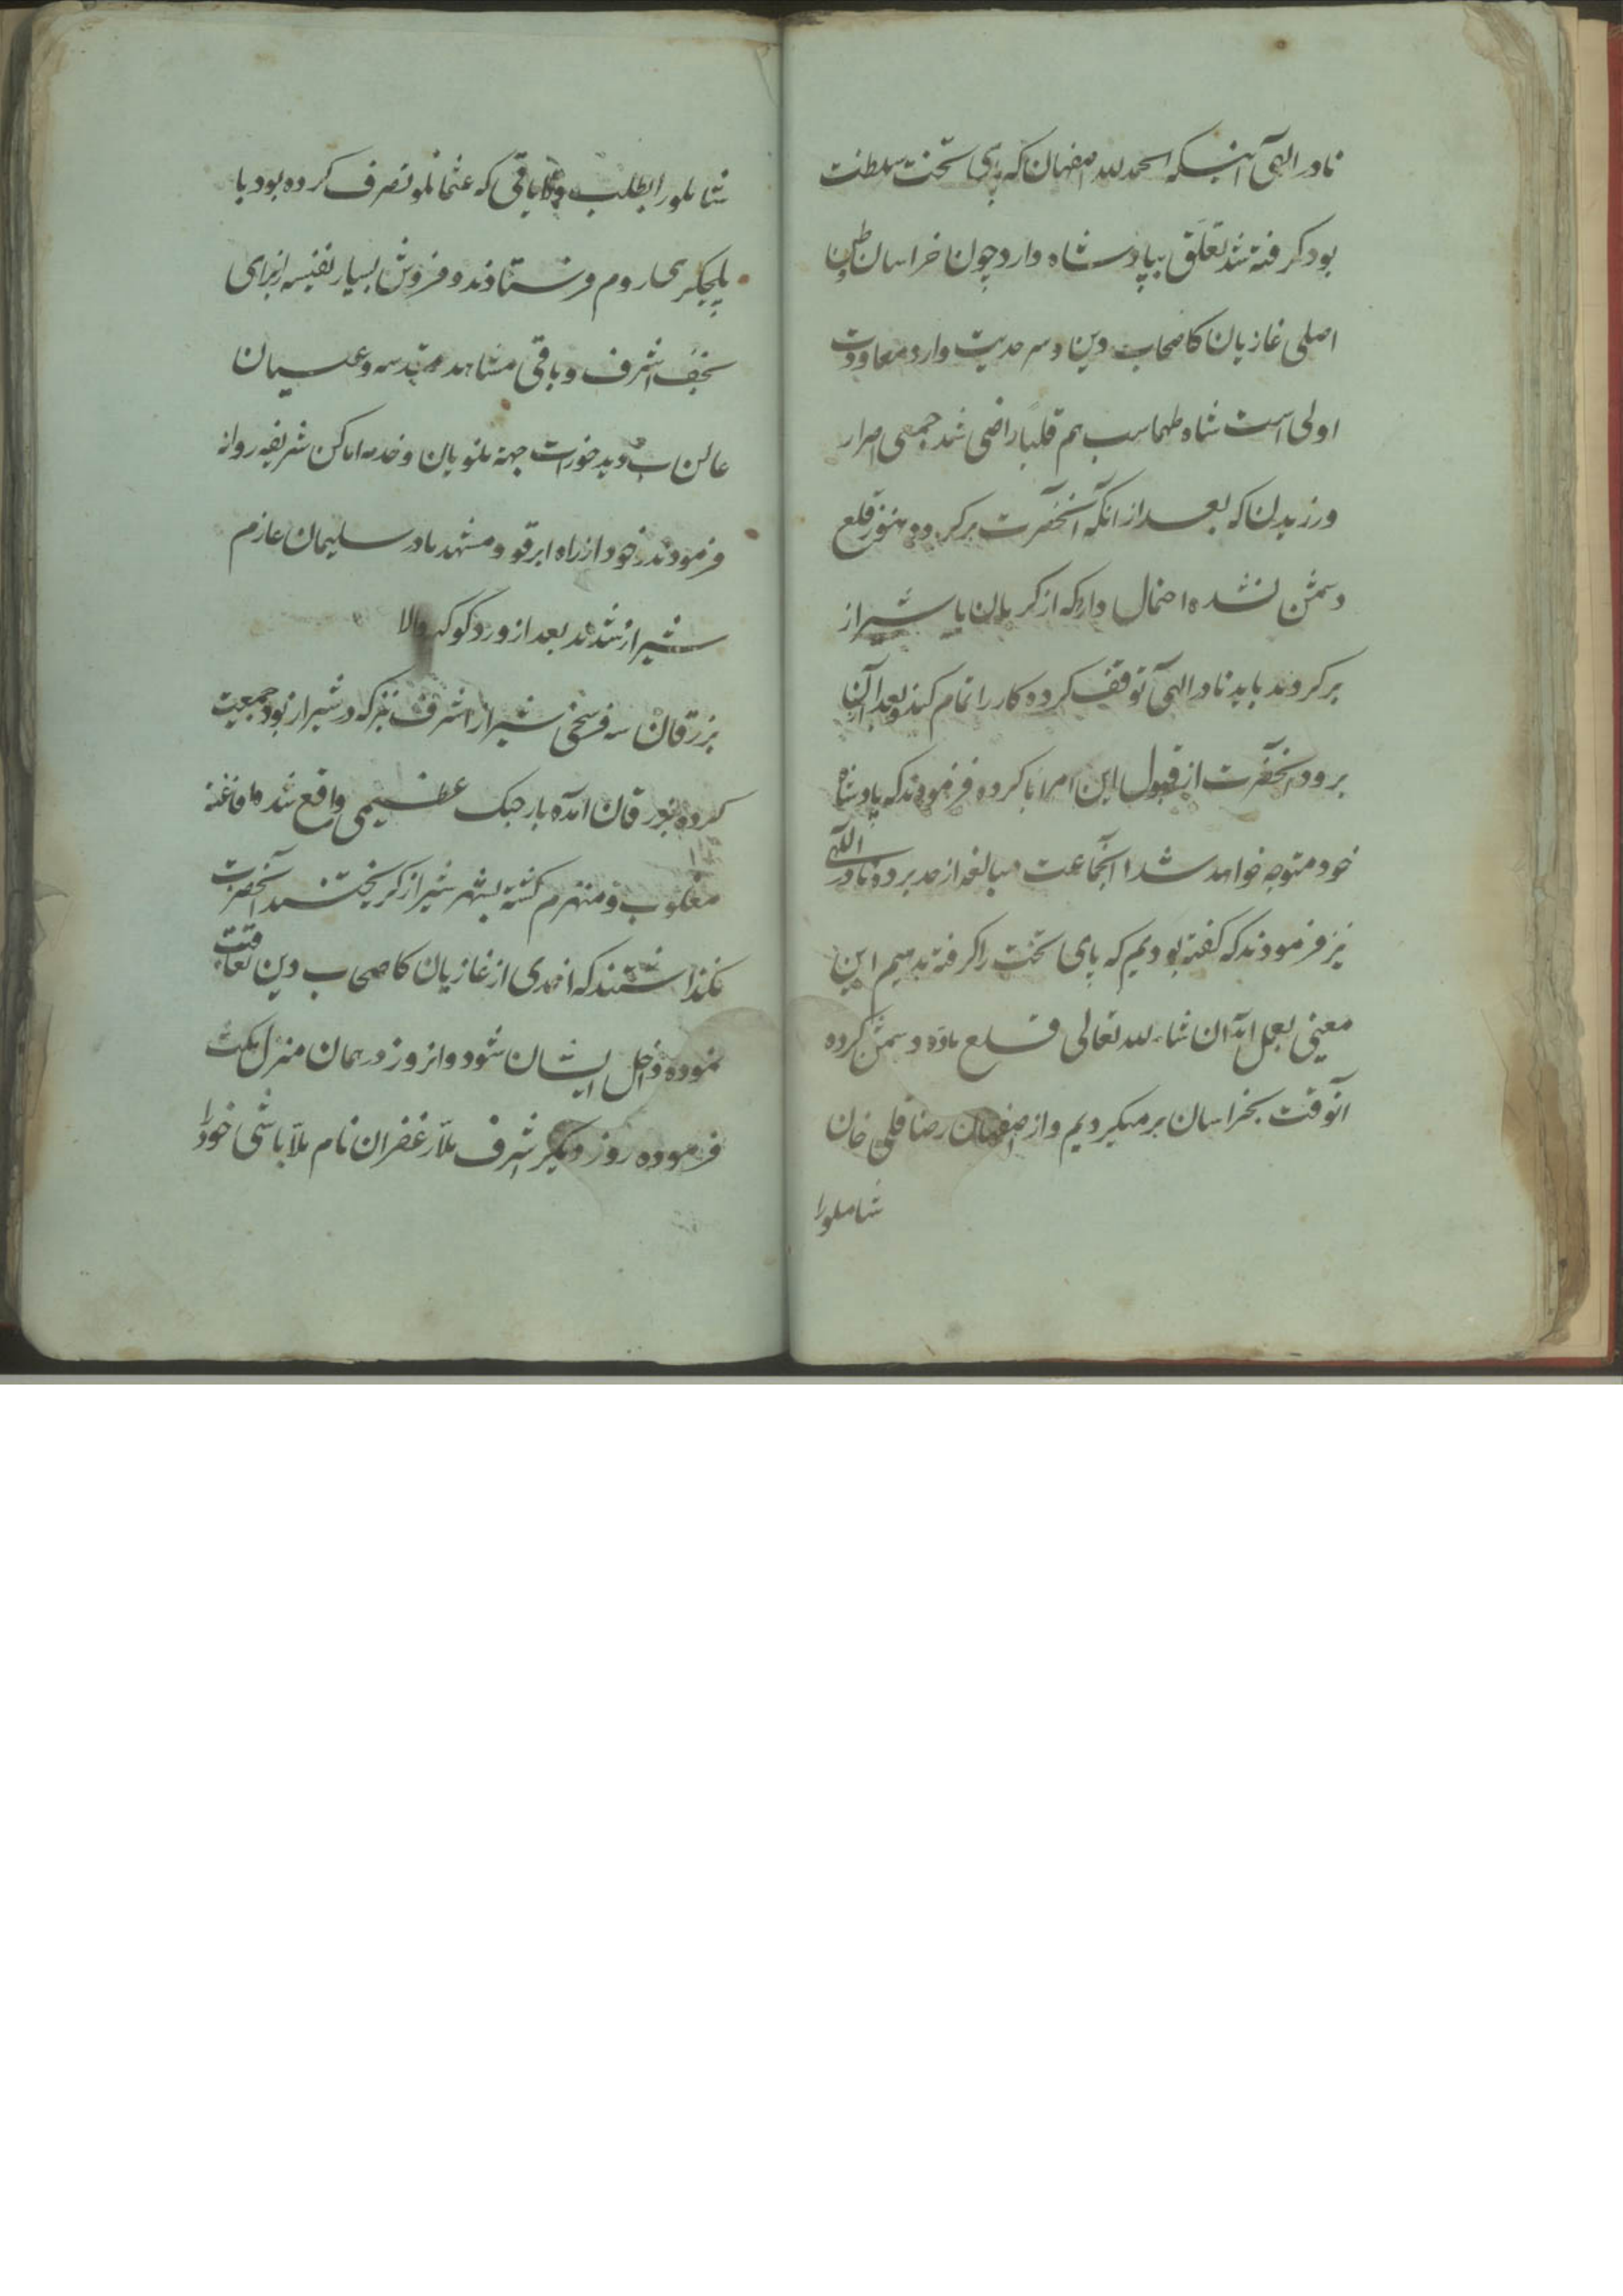 نادر الهی آنیکه الحمد لله اصفهان که پای تخت سلطنت
بود گرفته شد تعلق بپادشاه دارد چون خراسان وطن
اصلی غازیان کاصحاب دین و سرحدیت دارد معاودت
اولی است شاه طهماسب هم قلبا راضی شد جمعی اصرار
ورزیدن که بعد از آنکه آنحضرت برگردد هنوز قلع
دشمن نشده احتمال دارد که از کرمان یا شیراز
برگردند باید نادر الهی توقف کرده کار را تمام کند و بعد از آن
برود آنحضرت از قبول این امر ابا کرده فرمودند که پادشاه
خود متوجه خواهد شد آنجماعت مبالغه از حد برده نادر الهی
نیز فرمودند که گفته بودیم که پای تخت را گرفته بدهیم این
معنی بعمل آمد ان شاء لله تعالی قلع ماده دشمن کرده
آنوقت بخراسان برمیگردیم و از اصفهان رضا قلی خان
شاملو را
شاملو را بطلب ولایاتی که عثمانلو تصرف کرده بود با
یلچیگری روم فرستادند و فروش بسیار نفیسه از برای
نجف اشرف و باقی مشاهد مقدسه و علیسان
عالی دید خورات جهة مولویان و خدمه اماکن شریفه روانه
فرمودند خود از راه ابرقو و مشهد مادر سلیمان عازم
شیراز شدند بعد از ورد کوکبه والا
بزرقان سه فرسخی شیراز اشرف نیز که در شیراز بود جمعیت
کرده بزرقان آمده بار جنک عظیمی واقع شد افاغنه
مغلوب و منهزم گشته بشهر شیراز گریختند آنحضرت
نگذاشتند که احدی از غازیان کاصحاب دین تعاقب
نموده داخل ایشان شود و انروز در همان منزل مکث
فرموده روز دیگر اشرف ملا زعفران نام ملا باشی خود را